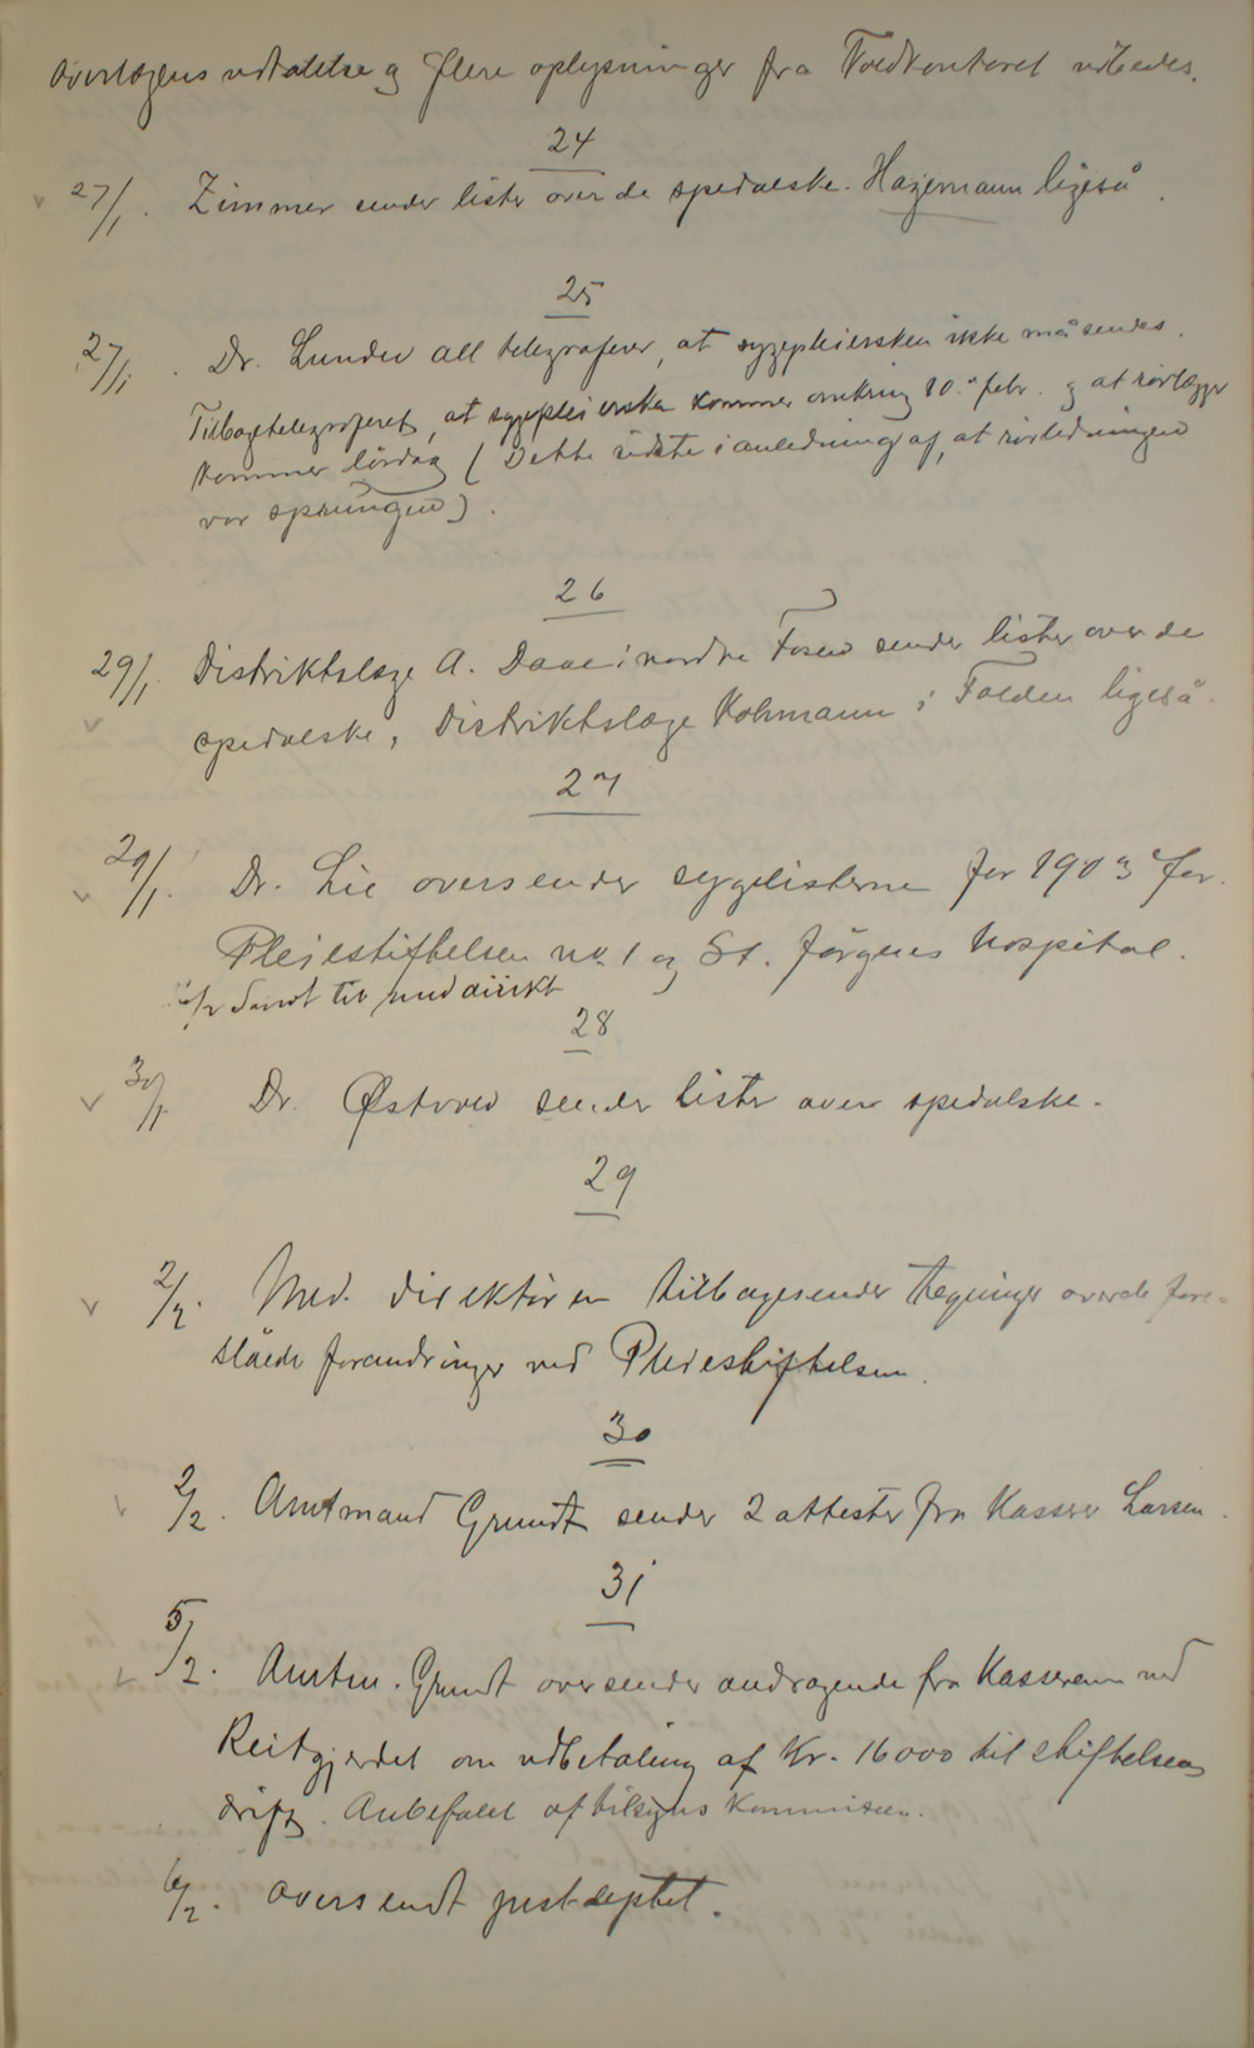 Overlægens udtalelse og flere oplysninger fra Toldkontoret udbedes.
24
27/1. Zimmer sender lister over de spedalske. Hagemann ligeså.
25
27/1. Dr. Lunder all telegraferer, at sygepleiersken ikke må sendes.
Tilbagetelegraferet, at sygepleiersken kommer omkring 10. febr. og at rørlægger
kommer lördag (Dette sidste i anledning af, at rörledningen
var sprungen).
26
29/1. Distriktslæge A. Daae i nordre Fosen sender lister over de
spedalske, Distriktslæge Kohmann i Folden ligeså.
27
29/1. Dr. Lie oversender sygelisterne for 1903 for
Pleiestiftelsen no. 1 og St. Jörgens Hospital.
/2 Sendt til med direkt
28
30/1. Dr. sender lister over spedalske.
29
2/2. Med. direktören tilbagesender tegninger over de fore-
slåede forandringer ved Pleiestiftelsen.
30
2/2. Amtmand Grundt sender 2 attester fra Kasserer Larsen.
31
5/2. Amtm. Grundt oversender andragende fra Kassereren ved
Reitgjerdet om udbetaling af Kr. 16000 til stiftelsens
drift. Anbefalet af tilsyns kommisionen.
6/2. oversendt just-deptet.